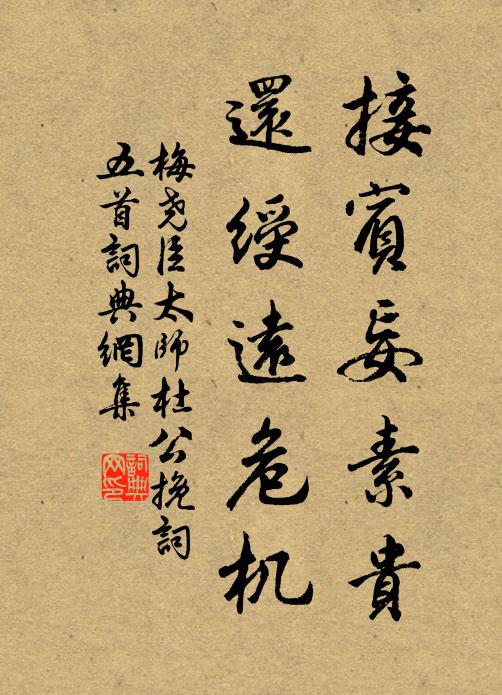 接賓妄素貴
還綬遠危机
梅尧臣太師杜公挽詞
五首詞典網集
詞典网印